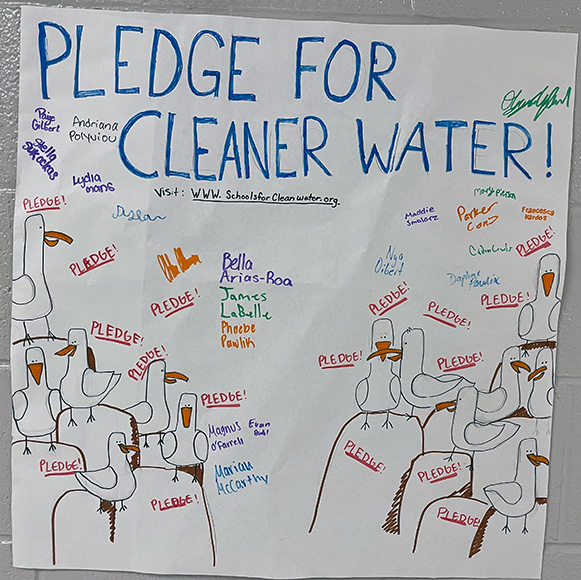 PLEDGE FOR
CLEANER WATER!
Paige
Gilbert
Andriana
Polyviou
Stella
Lydia
Mans
Visit: WWW.Schoolsforcleanwater.org.
Dyllan
Maddie
Smolarz
Mary
Parker
Francesca
PLEDGE!
PLEDGE!
PLEDGE!
PLEDGE!
Bella
Arias-Roa
James
LaBelle
Phoebe
Pawlik
Nya
Daphne
PLEDGE!
PLEDGE!
PLEDGE!
PLEDGE!
PLEDGE!
PLEDGE!
PLEDGE!
PLEDGE!
Magnus
O'Farrell
Evan
Marian
McCarthy
PLEDGE!
PLEDGE!
PLEDGE!
PLEDGE!
PLEDGE!